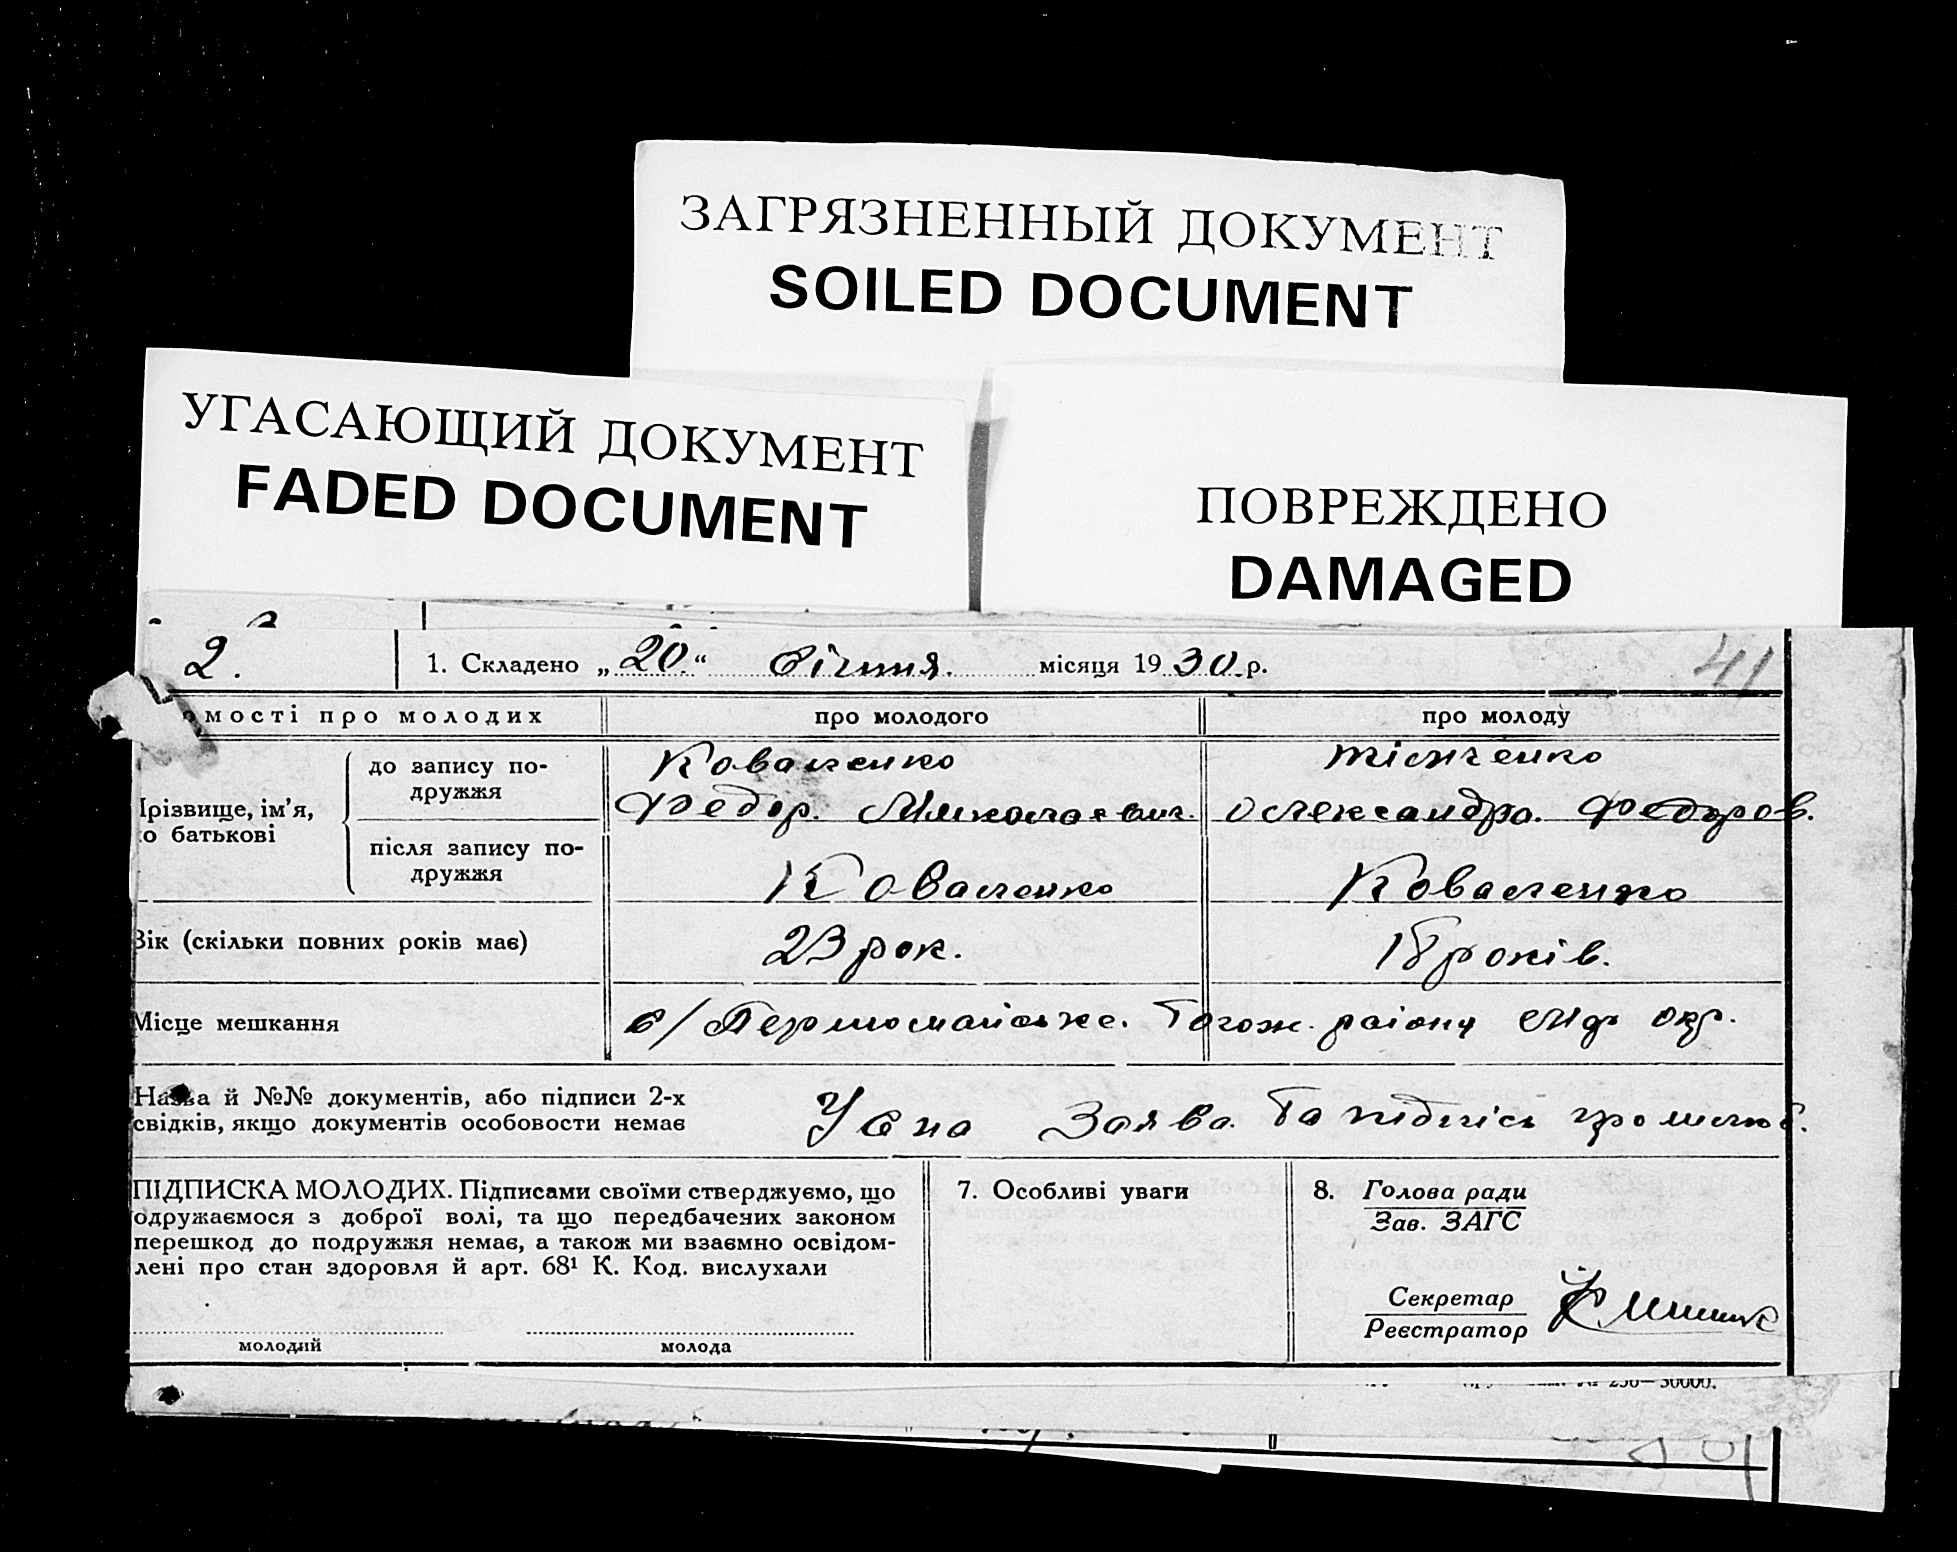 ЗАГРЯЗНЕННЫЙ ДОКУМЕНТ
SOILED DOCUMENT
УГАСАЮЩИЙ ДОКУМЕНТ
FADED DOCUMENT
ПОВРЕЖДЕНО
DAMAGED
2. 1. Складено „20.“ Січня. місяця 1930.р. 41
омості про молодих про молодого про молоду
до запису по- Коваленко Тімченко
дружжя
різвище, ім'я, Федор. Миколаевич. Олександра. Федоров.
о батькові
після запису по-
дружжя Коваленко Коваленко
Вік (скільки повних років має) 23 рок. 18 років.
Місце мешкання с/ Первомайське. району окр.
Назва й №№ документів, або підписи 2-х
свідків, якщо документів особовости немає Усна Заява та підпісь
ПІДПИСКА МОЛОДИХ. Підписами своїми стверджуємо, що
одружаємося з доброї волі, та що передбачених законом
перешкод до подружжя немає, а також ми взаємно освідом-
лені про стан здоровля й арт. 68¹ К. Код. вислухали
молодий молода
7. Особливі уваги
8. Голова ради
Зав. ЗАГС
Секретар
Реєстратор
№ 250—30000.